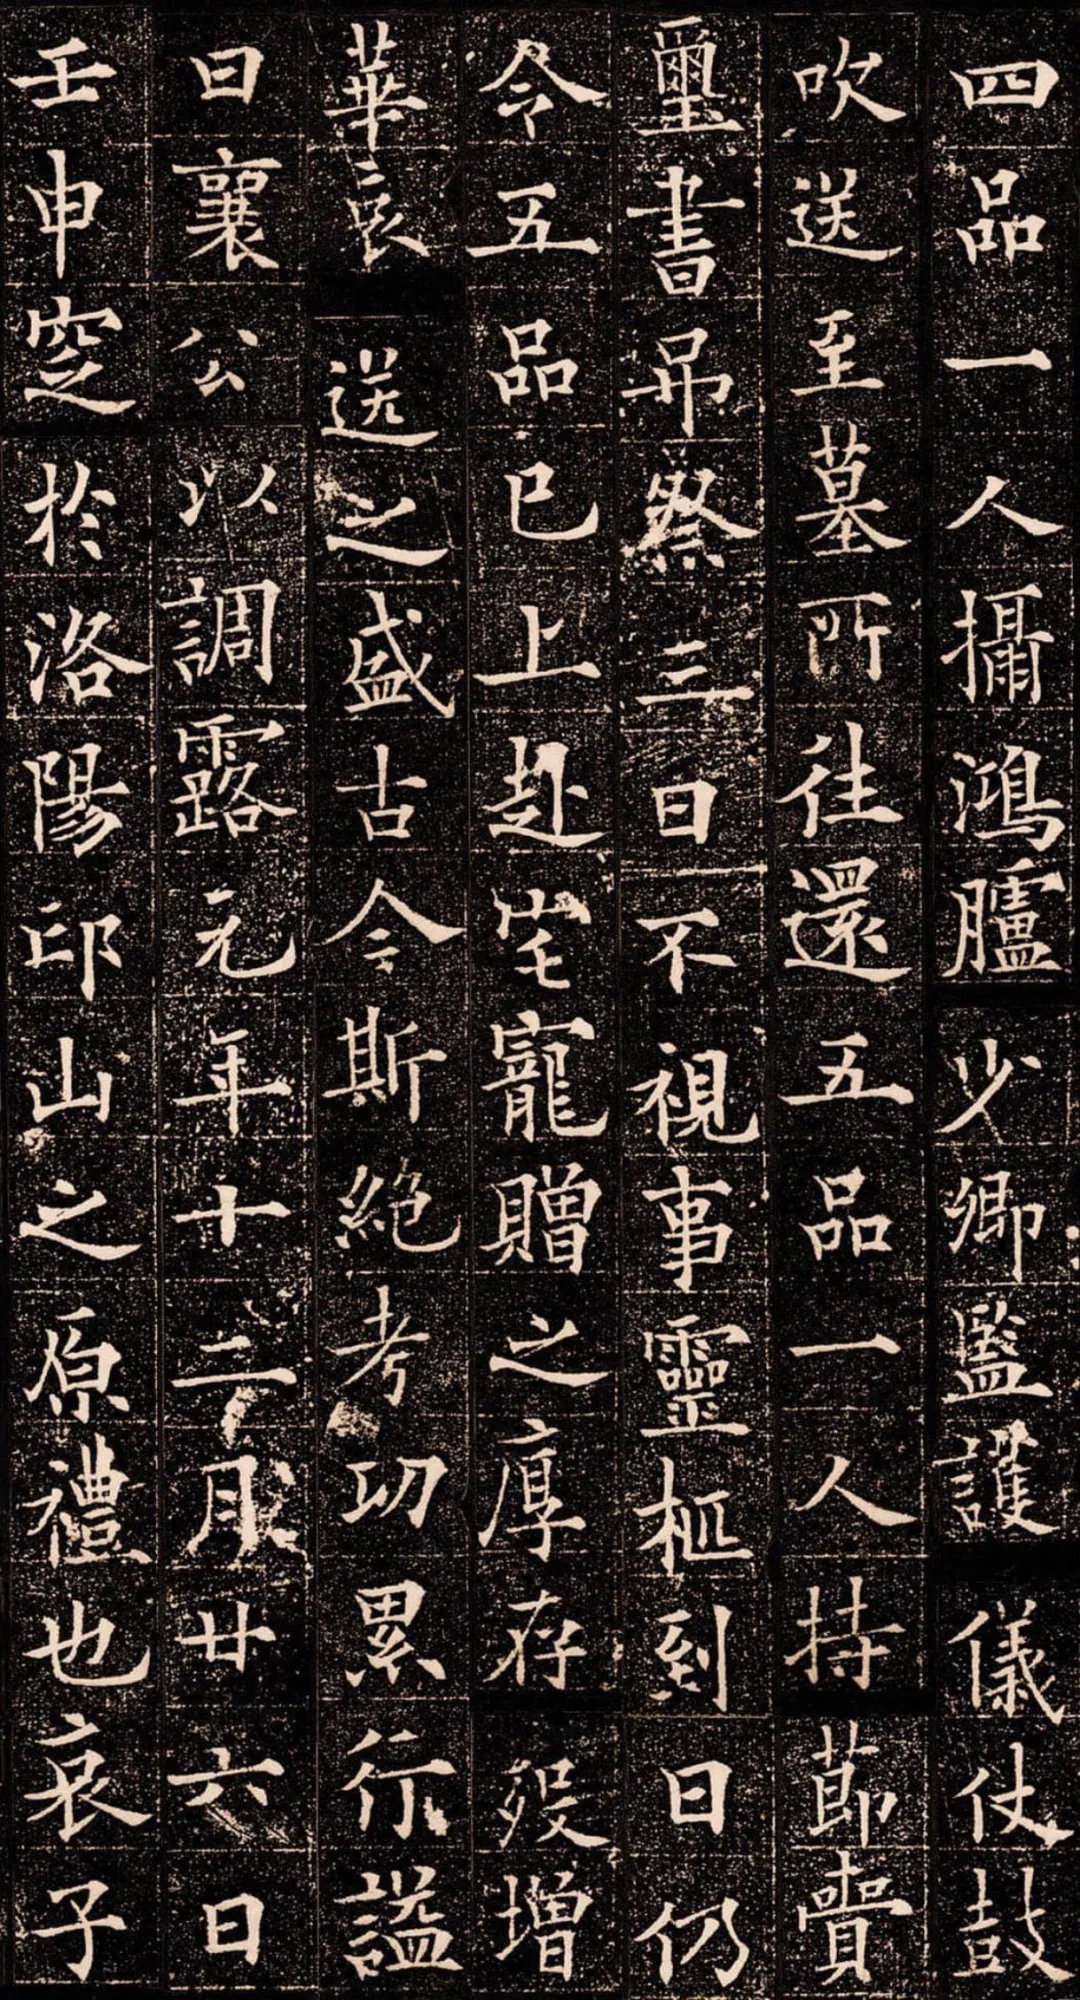 四品一人攝鴻臚少卿監護儀仗鼓
吹送至墓所往還五品一人持節賷
璽書弔祭三日不視事靈柩到日仍
令五品已上赴宅寵贈之厚存歿增
華哀送之盛古今斯絕考功累行謚
曰襄公以調露元年十二月廿六日
壬申窆於洛陽邙山之原禮也哀子